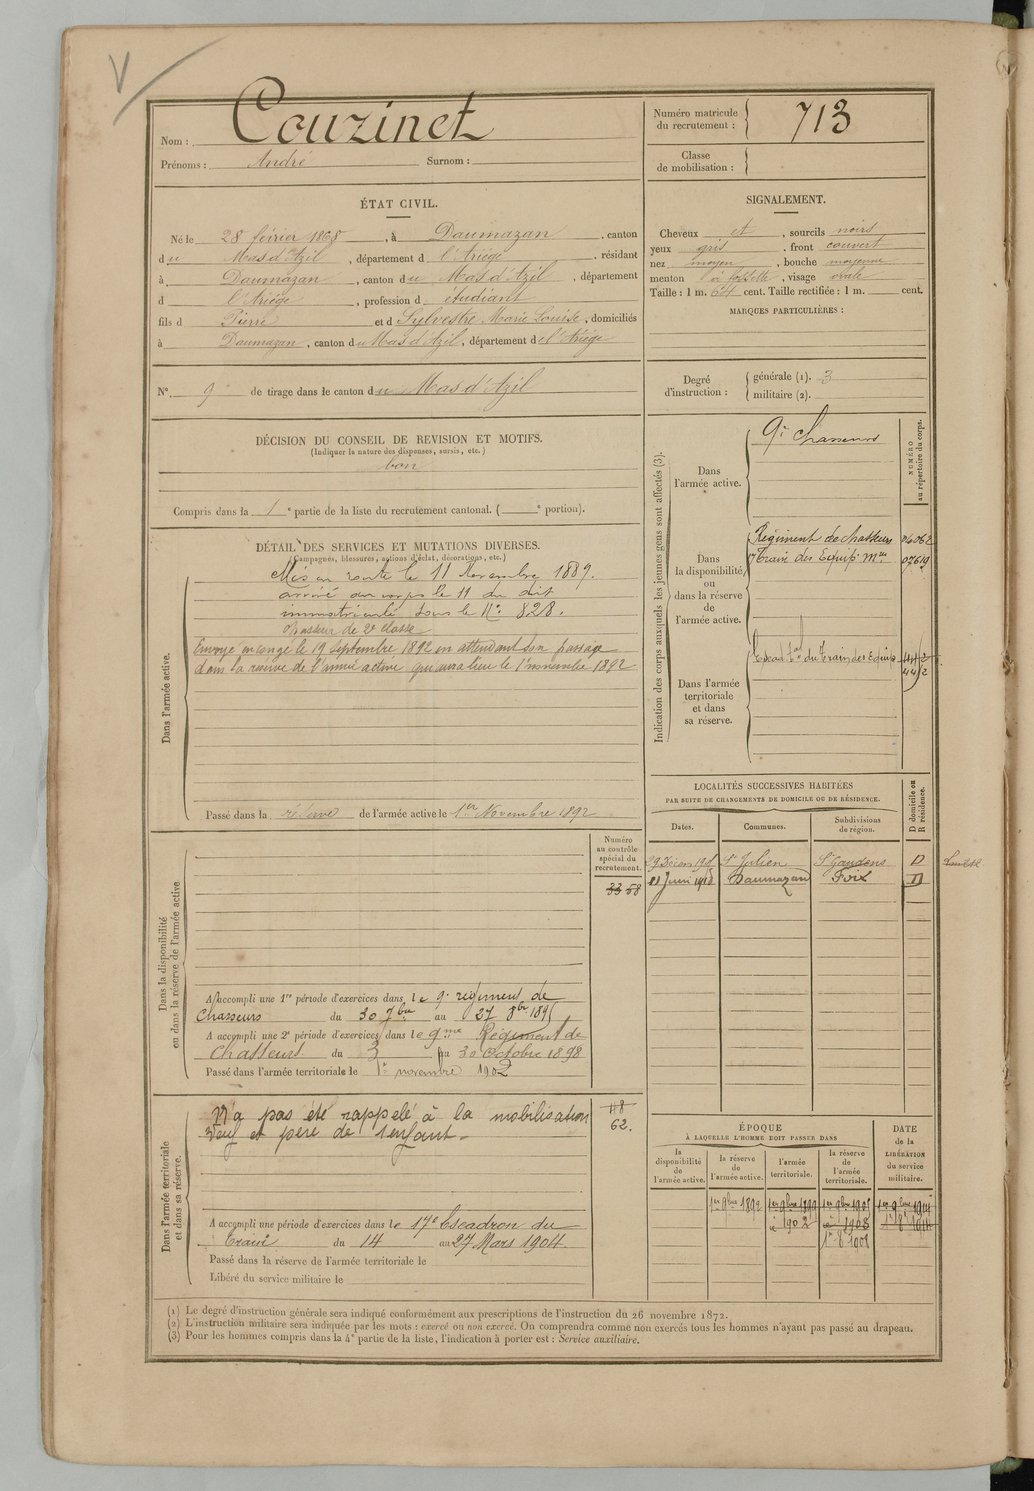 V
Nom : Couzinet
Prénoms : André Surnom :
Numéro matricule du recrutement : 713
Classe de mobilisation :
ÉTAT CIVIL.
Né le 28 février 1868, à Daumazan, canton
du Mas d'Azil, département d l'Ariège, résidant
à Daumazan, canton du Mas d'Azil, département
d l'Ariège, profession d étudiant
fils d Pierre et d Sylvestre Marie Louise, domiciliés
à Daumazan, canton du Mas d'Azil, département de l'Ariège
SIGNALEMENT.
Cheveux et, sourcils noirs
yeux gris, front couvert
nez moyen, bouche moyenne
menton à fossette, visage ovale
Taille : 1 m. 64 cent. Taille rectifiée : 1 m. cent.
MARQUES PARTICULIÈRES :
N° 9 de tirage dans le canton du Mas d'Azil
Degré d'instruction : générale (1). 3
militaire (2).
DÉCISION DU CONSEIL DE REVISION ET MOTIFS.
(Indiquer la nature des dispenses, sursis, etc.)
bon
Compris dans la 1e partie de la liste du recrutement cantonal. ( e portion).
DÉTAIL DES SERVICES ET MUTATIONS DIVERSES.
(Campagnes, blessures, actions d'éclat, décorations, etc.)
Dans l'armée active.
Mis en route le 11 Novembre 1889.
arrivé au corps le 11 du dit
immatriculé sous le N° 828.
chasseur de 2e classe
Envoyé en congé le 19 septembre 1892 en attendant son passage
dans la réserve de l'armée active qui aura lieu le 1er novembre 1892
Passé dans la réserve de l'armée active le 1er Novembre 1892
Indication des corps auxquels les jeunes gens sont affectés (3).
NUMÉRO au répertoire du corps.
Dans l'armée active.
9e Chasseurs
Dans la disponibilité ou dans la réserve de l'armée active.
Régiment de chasseurs
Train des Equip. Mres 07619
Dans l'armée territoriale et dans sa réserve.
du Train des Equip.
LOCALITÉS SUCCESSIVES HABITÉES
PAR SUITE DE CHANGEMENTS DE DOMICILE OU DE RÉSIDENCE.
Dates. Communes. Subdivisions de région. D domicile ou R résidence.
St Julien St Gaudens D
Juin Daumazan Foix D
Dans la disponibilité ou dans la réserve de l'armée active
Numéro au contrôle spécial du recrutement.
33 58
A accompli une 1re période d'exercices dans le 9e régiment de
Chasseurs du 30 7bre au 27 8bre 1895
A accompli une 2e période d'exercices dans le 9me Régiment de
Chasseurs. du 3 au 30 Octobre 1898
Passé dans l'armée territoriale le 1er novembre 1902
Dans l'armée territoriale et dans sa réserve.
N'a pas été rappelé à la mobilisation
veuf et père de 1 enfant.
118
62.
A accompli une période d'exercices dans le 17e Escadron du
Train du 14 au 27 Mars 1904.
Passé dans la réserve de l'armée territoriale le
Libéré du service militaire le
ÉPOQUE
À LAQUELLE L'HOMME DOIT PASSER DANS
la disponibilité de l'armée active. la réserve de l'armée active. l'armée territoriale. la réserve de l'armée territoriale.
DATE de la LIBÉRATION du service militaire.
1er 9bre 1892 1er 9bre 1899 1er 9bre 1905 1er 9bre 1911
1902 1908 1914
1908
(1) Le degré d'instruction générale sera indiqué conformément aux prescriptions de l'instruction du 26 novembre 1872.
(2) L'instruction militaire sera indiquée par les mots : exercé ou non exercé. On comprendra comme non exercés tous les hommes n'ayant pas passé au drapeau.
(3) Pour les hommes compris dans la 4e partie de la liste, l'indication à porter est : Service auxiliaire.